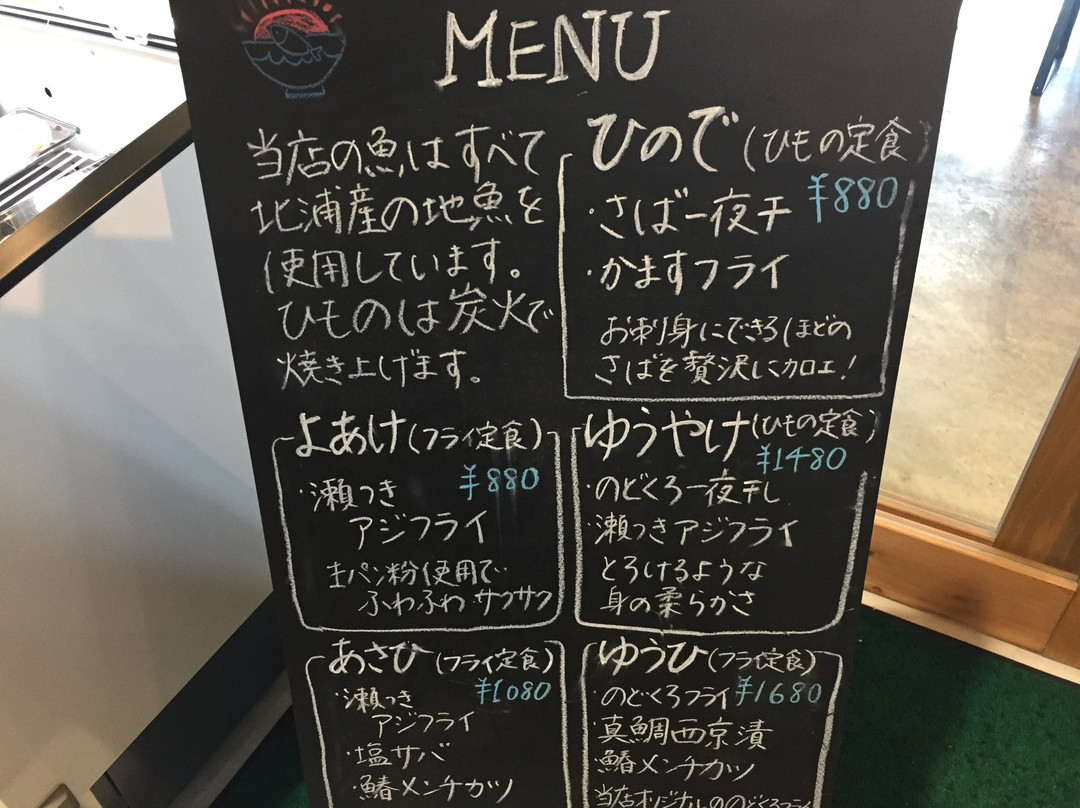 MENU
当店の魚はすべて
北浦産の地魚を
使用しています。
ひものは炭火で
焼き上げます。
ひので(ひもの定食)
¥880
・さば一夜干
・かますフライ
お刺身にできるほどの
さばを贅沢に加工!
よあけ(フライ定食)
¥880
・瀬つき
アジフライ
生パン粉使用で
ふわふわ サクサク
ゆうやけ(ひもの定食)
¥1480
・のどくろ一夜干し
・瀬つきアジフライ
とろけるような
身の柔らかさ
あさひ(フライ定食)
¥1080
・瀬つき
アジフライ
・塩サバ
・鰆メンチカツ
ゆうひ(フライ定食)
・のどくろフライ ¥1680
・真鯛西京漬
・鰆メンチカツ
当店オリジナルののどくろフライ